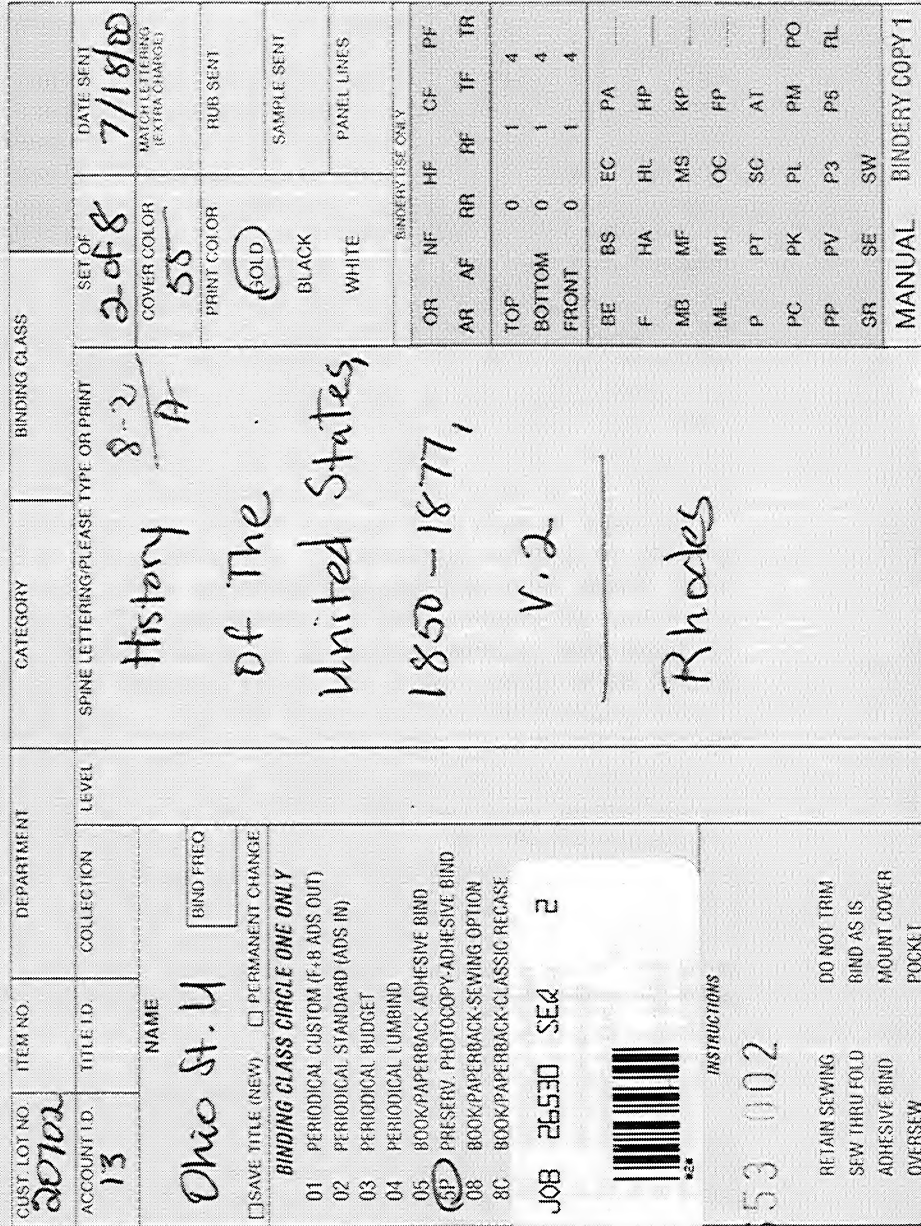 CUST. LOT NO. ITEM NO. DEPARTMENT CATEGORY BINDING CLASS
20702
ACCOUNT I.D. TITLE I.D. COLLECTION LEVEL
13
NAME
Ohio St. U
BIND FREQ
☐ SAVE TITLE (NEW) ☐ PERMANENT CHANGE
BINDING CLASS CIRCLE ONE ONLY
01 PERIODICAL CUSTOM (F+B ADS OUT)
02 PERIODICAL STANDARD (ADS IN)
03 PERIODICAL BUDGET
04 PERIODICAL UMBIND
05 BOOK/PAPERBACK ADHESIVE BIND
5P PRESERV. PHOTOCOPY-ADHESIVE BIND
08 BOOK/PAPERBACK-SEWING OPTION
8C BOOK/PAPERBACK-CLASSIC RECASE
JOB 26530 SEQ 2
INSTRUCTIONS
53 002
RETAIN SEWING DO NOT TRIM
SEW THRU FOLD BIND AS IS
ADHESIVE BIND MOUNT COVER
OVERSEW POCKET
SPINE LETTERING-PLEASE TYPE OR PRINT
8-2
A
History
Of The
United States,
1850-1877,
V.2
Rhodes
SET OF DATE SENT
2 of 8 7/18/00
COVER COLOR MATCH LETTERING
(EXTRA CHARGE)
55
PRINT COLOR RUB SENT
GOLD
SAMPLE SENT
BLACK
WHITE PANEL LINES
BINDERY USE ONLY
OR NF HF CF PF
AR AF RR RF TF TR
TOP 0 1 4
BOTTOM 0 1 4
FRONT 0 1 4
BE BS EC PA
F HA HL HP
MB MF MS KP
ML MI OC FP
P PT SC AT
PC PK PL PM PO
PP PV P3 P5 RL
SR SE SW
MANUAL BINDERY COPY 1